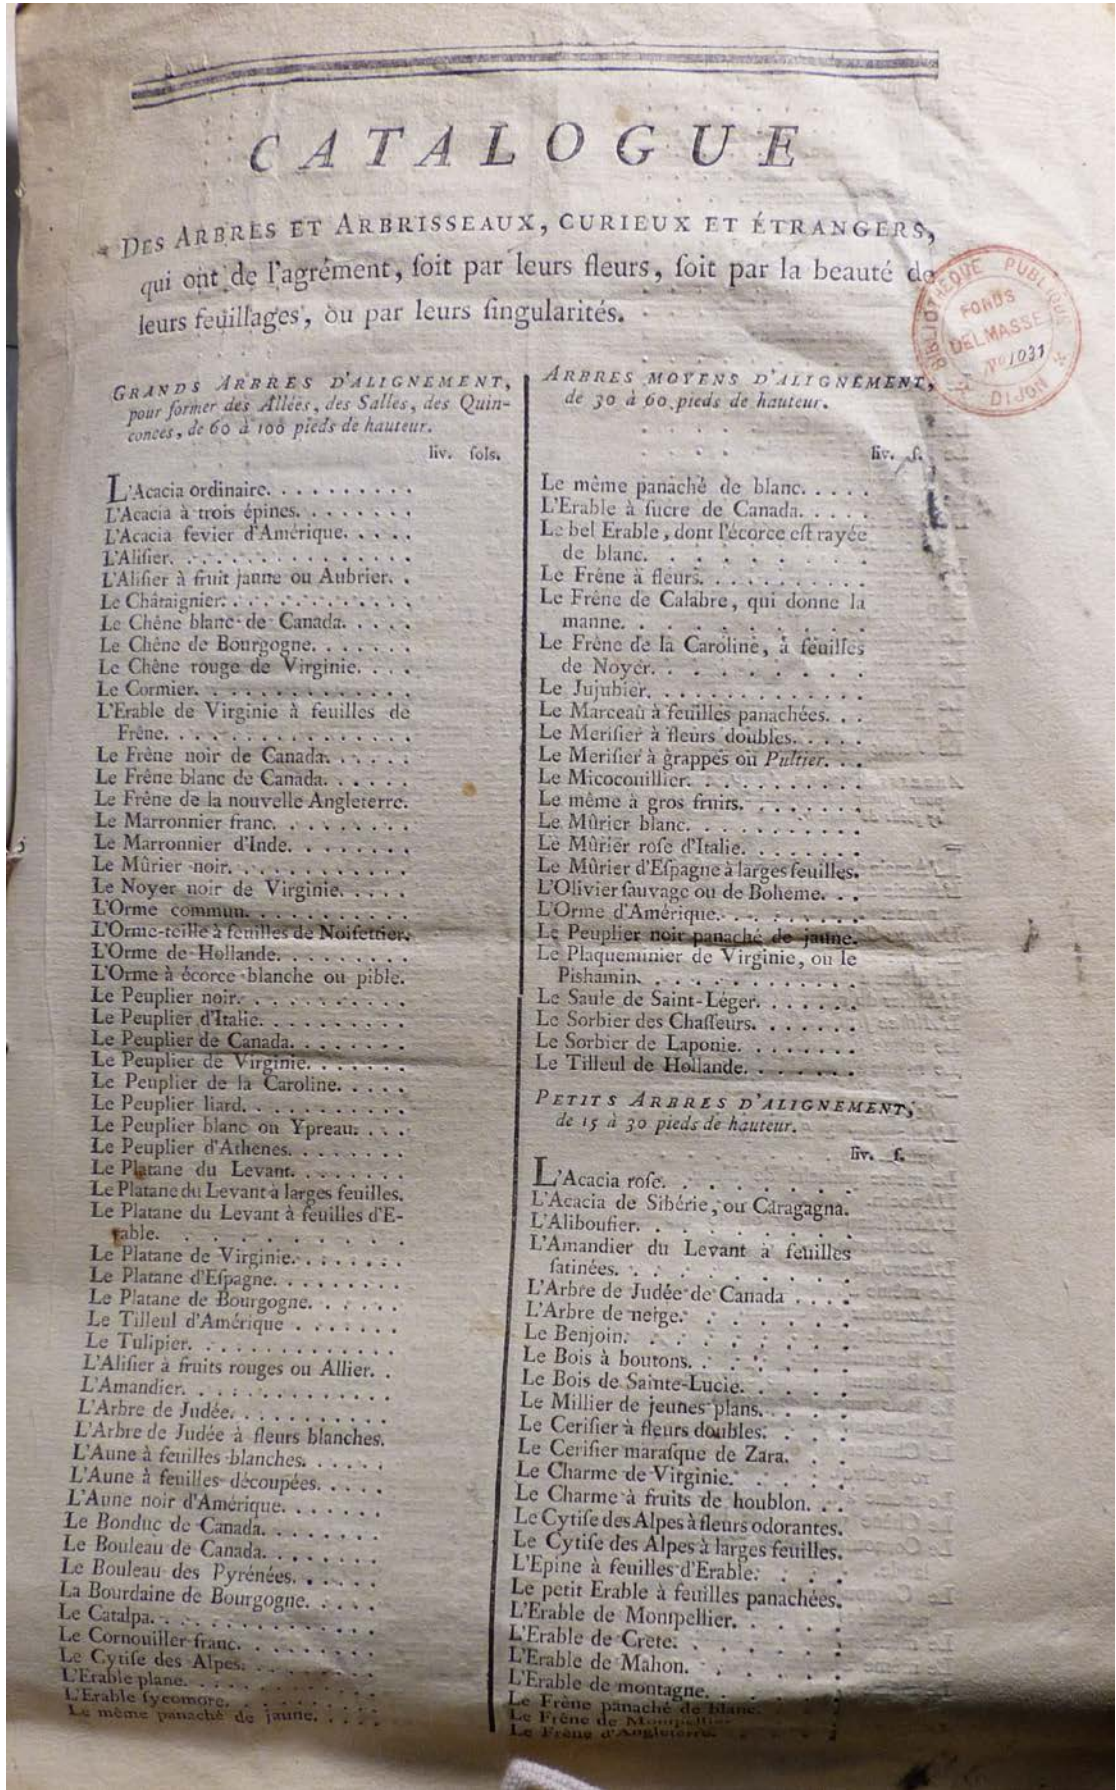 CATALOGUE
DES ARBRES ET ARBRISSEAUX, CURIEUX ET ÉTRANGERS,
qui ont de l'agrément, ſoit par leurs fleurs, ſoit par la beauté de
leurs feuillages, ou par leurs ſingularités.
BIBLIOTHEQUE PUBLIQUE
FONDS
DELMASSE
No 1031
DIJON
GRANDS ARBRES D'ALIGNEMENT,
pour former des Allées, des Salles, des Quin-
conces, de 60 à 100 pieds de hauteur.
liv. ſols.
L'Acacia ordinaire. . . . . . . . .
L'Acacia à trois épines. . . . . . .
L'Acacia fevier d'Amérique. . . . .
L'Aliſier. . . . . . . . . . . . .
L'Aliſier à fruit jaune ou Aubrier. .
Le Châtaignier. . . . . . . . . . .
Le Chêne blanc de Canada. . . . .
Le Chêne de Bourgogne. . . . . . .
Le Chêne rouge de Virginie. . . .
Le Cormier. . . . . . . . . . . .
L'Erable de Virginie à feuilles de
Frêne. . . . . . . . . . . . . .
Le Frêne noir de Canada. . . . . .
Le Frêne blanc de Canada. . . . . .
Le Frêne de la nouvelle Angleterre.
Le Marronnier franc. . . . . . . .
Le Marronnier d'Inde. . . . . . . .
Le Mûrier noir. . . . . . . . . . .
Le Noyer noir de Virginie. . . . .
L'Orme commun. . . . . . . . . . .
L'Orme-teille à feuilles de Noiſettier.
L'Orme de Hollande. . . . . . . .
L'Orme à écorce blanche ou pible.
Le Peuplier noir. . . . . . . . . .
Le Peuplier d'Italie. . . . . . . . .
Le Peuplier de Canada. . . . . . .
Le Peuplier de Virginie. . . . . . .
Le Peuplier de la Caroline. . . . .
Le Peuplier liard. . . . . . . . . .
Le Peuplier blanc ou Ypreau. . . .
Le Peuplier d'Athenes. . . . . . .
Le Platane du Levant. . . . . . .
Le Platane du Levant à larges feuilles.
Le Platane du Levant à feuilles d'E-
rable. . . . . . . . . . .
Le Platane de Virginie. . . . . . .
Le Platane d'Eſpagne. . . . . . . .
Le Platane de Bourgogne. . . . . .
Le Tilleul d'Amérique . . . . . . .
Le Tulipier. . . . . . . . . . . .
L'Aliſier à fruits rouges ou Allier. .
L'Amandier. . . . . . . . . . . .
L'Arbre de Judée. . . . . . . . . .
L'Arbre de Judée à fleurs blanches.
L'Aune à feuilles blanches. . . . . .
L'Aune à feuilles découpées. . . . .
L'Aune noir d'Amérique. . . . . . .
Le Bonduc de Canada. . . . . . . .
Le Bouleau de Canada. . . . . . . .
Le Bouleau des Pyrénées. . . . . .
La Bourdaine de Bourgogne. . . . .
Le Catalpa. . . . . . . . . . . . .
Le Cornouiller franc. . . . . . . . .
Le Cytiſe des Alpes. . . . . . . . .
L'Erable plane. . . . . . . . . . .
L'Erable ſycomore. . . . . . . . .
Le même panaché de jaune. . . . .
ARBRES MOYENS D'ALIGNEMENT,
de 30 à 60 pieds de hauteur.
liv. ſ.
Le même panaché de blanc. . . . .
L'Erable à ſucre de Canada. . . . .
Le bel Erable, dont l'écorce eſt rayée
de blanc. . . . . . . . .
Le Frêne à fleurs. . . . . . . . . .
Le Frêne de Calabre, qui donne la
manne. . . . . . . . . .
Le Frêne de la Caroline, à feuilles
de Noyer. . . . . . . . .
Le Jujubier. . . . . . . . . . . .
Le Marceau à feuilles panachées. . .
Le Meriſier à fleurs doubles. . . . .
Le Meriſier à grappes ou Pultier. . .
Le Micocouillier. . . . . . . . . .
Le même à gros fruits. . . . . . . .
Le Mûrier blanc. . . . . . . . . .
Le Mûrier roſe d'Italie. . . . . . .
Le Mûrier d'Eſpagne à larges feuilles.
L'Olivier ſauvage ou de Boheme. . .
L'Orme d'Amérique. . . . . . . . .
Le Peuplier noir panaché de jaune.
Le Plaqueminier de Virginie, ou le
Pishamin. . . . . . . . . .
Le Saule de Saint-Léger. . . . . . .
Le Sorbier des Chaſſeurs. . . . . . .
Le Sorbier de Laponie. . . . . . . .
Le Tilleul de Hollande. . . . . . .
PETITS ARBRES D'ALIGNEMENT,
de 15 à 30 pieds de hauteur.
liv. ſ.
L'Acacia roſe. . . . . . . .
L'Acacia de Sibérie, ou Caragagna.
L'Aliboufier. . . . . . . . .
L'Amandier du Levant à feuilles
ſatinées. . . . . . . . . .
L'Arbre de Judée de Canada . . . .
L'Arbre de neige. . . . . . . .
Le Benjoin. . . . . . . . . .
Le Bois à boutons. . . . . . .
Le Bois de Sainte-Lucie. . . . .
Le Millier de jeunes plans. . . . .
Le Ceriſier à fleurs doubles. . . .
Le Ceriſier maraſque de Zara. . .
Le Charme de Virginie. . . . .
Le Charme à fruits de houblon. . .
Le Cytiſe des Alpes à fleurs odorantes.
Le Cytiſe des Alpes à larges feuilles.
L'Epine à feuilles d'Erable. . . .
Le petit Erable à feuilles panachées.
L'Erable de Montpellier. . . . .
L'Erable de Crete. . . . . . .
L'Erable de Mahon. . . . . . .
L'Erable de montagne. . . . . .
Le Frêne panaché de blanc. . . .
Le Frêne de Montpellier
Le Frêne d'Angleterre. . . . .